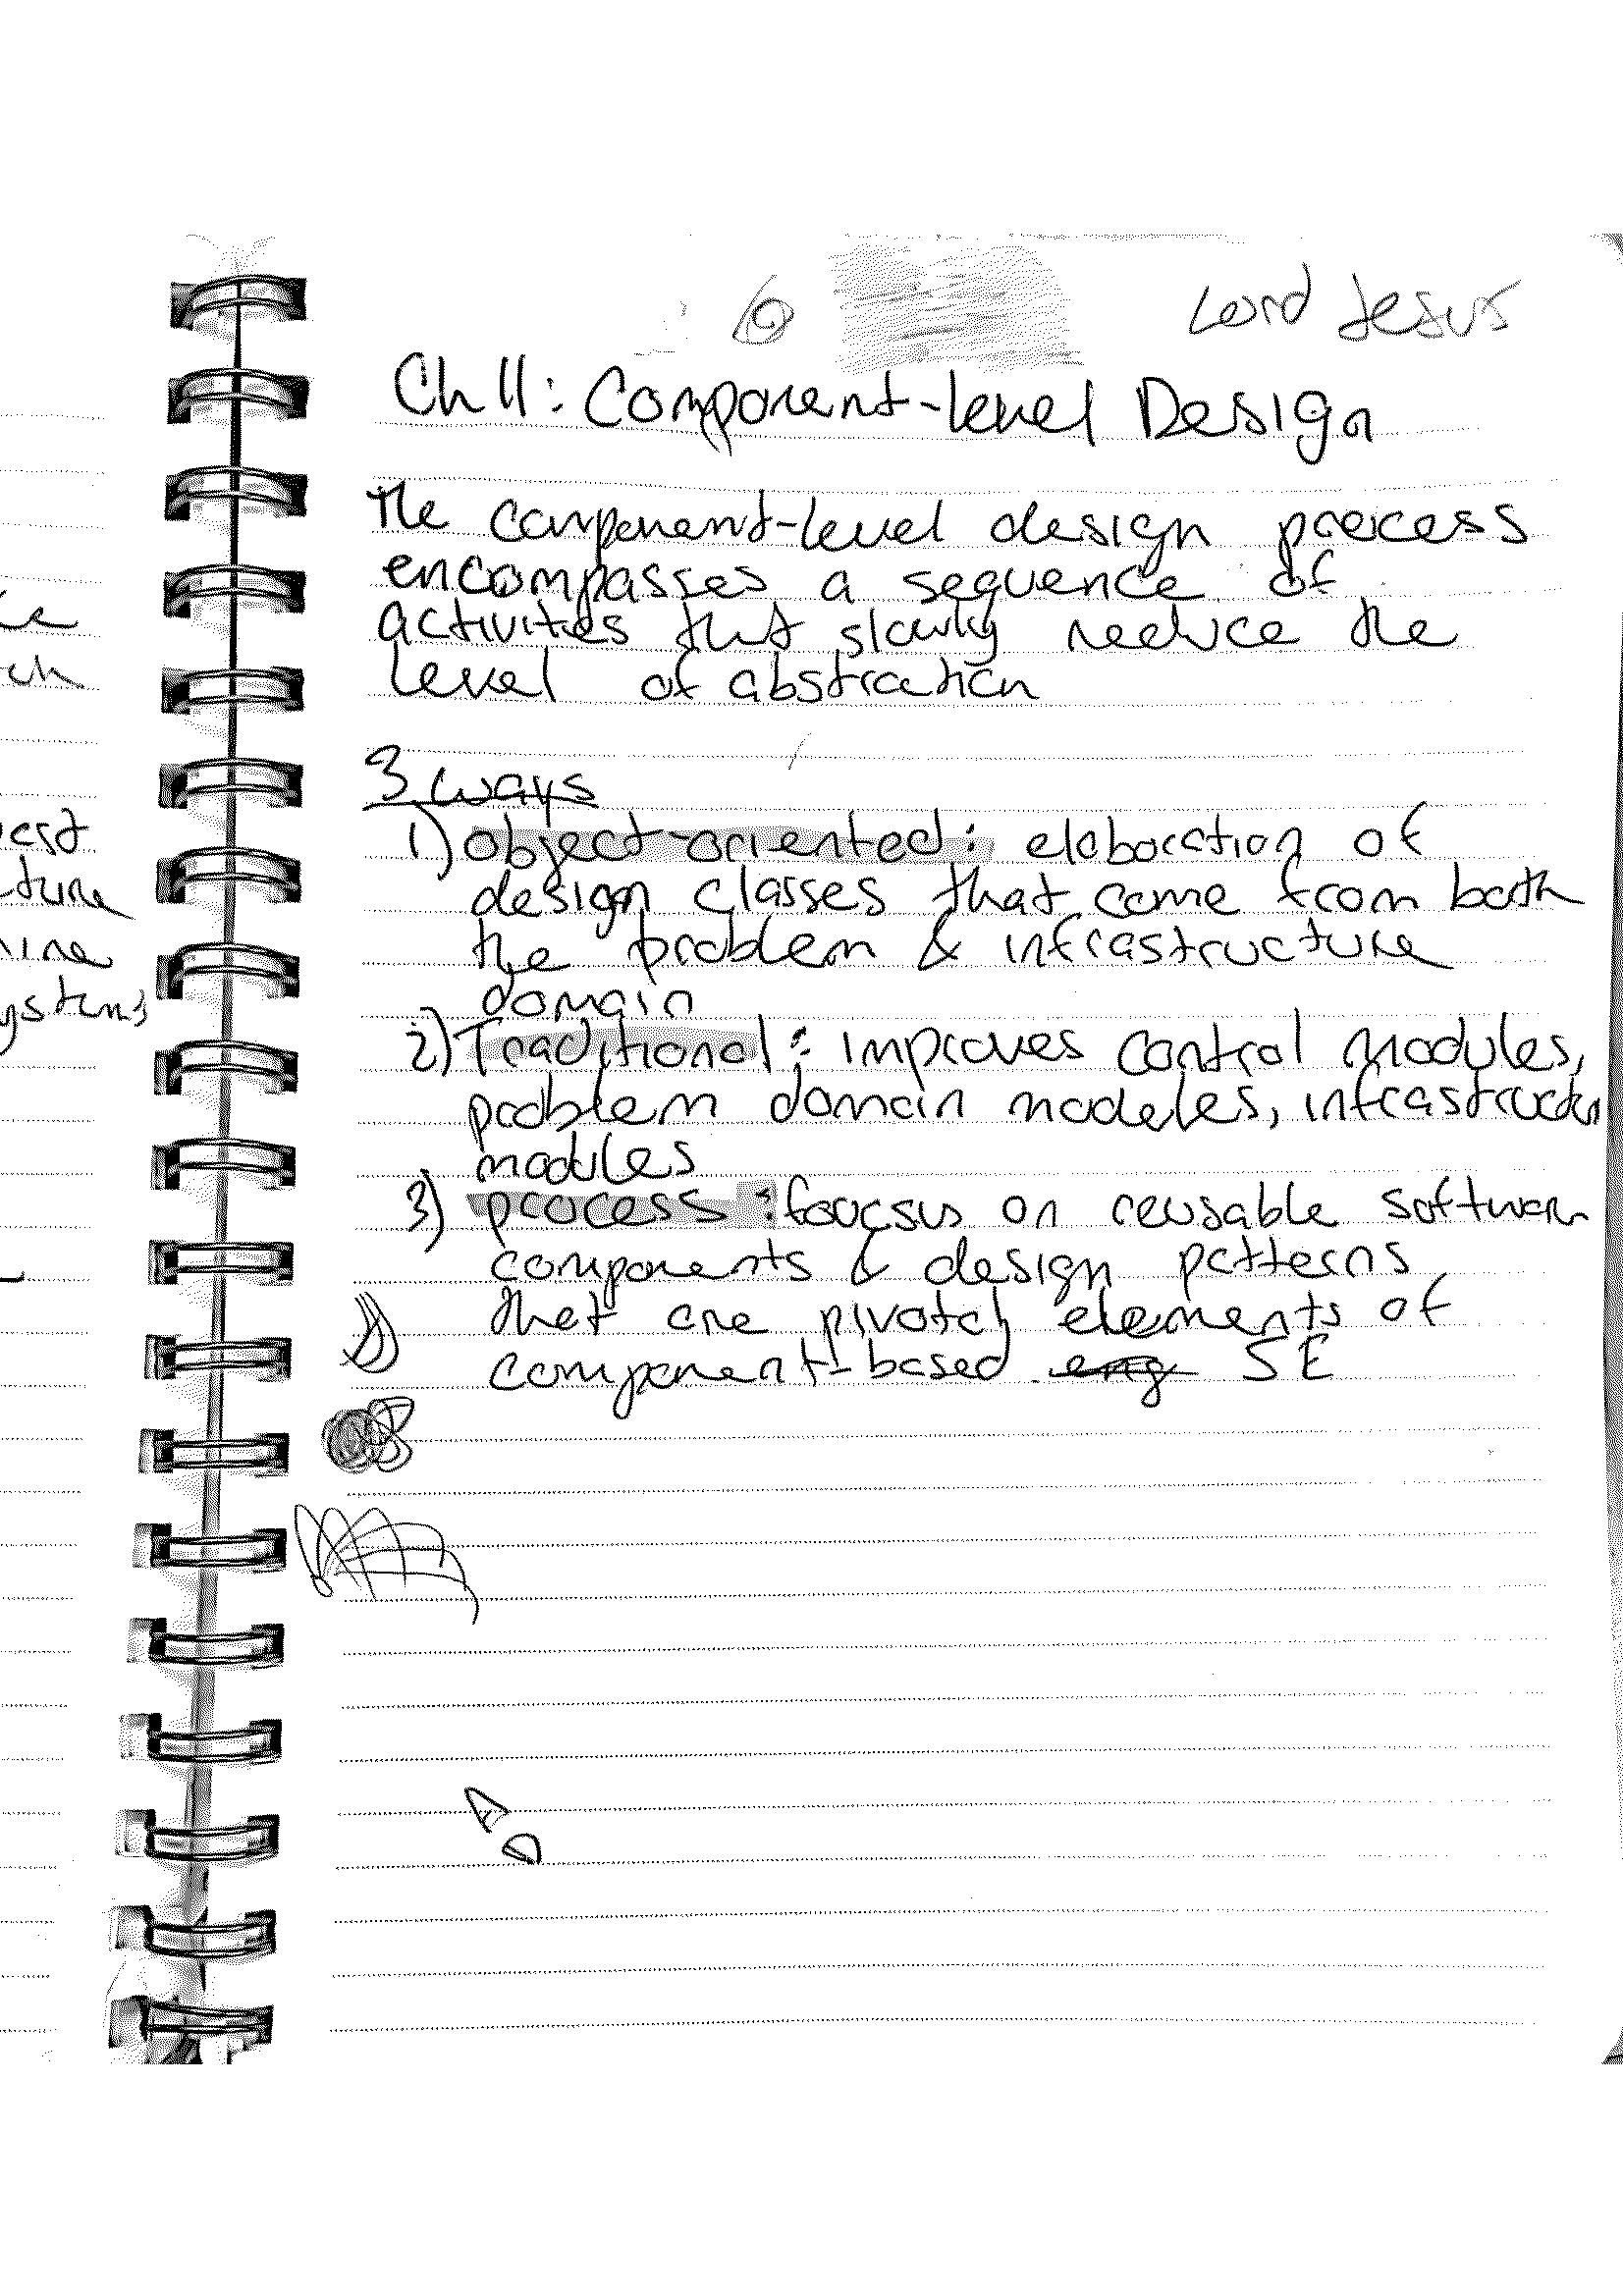 Lord Jesus
Ch 11: Component-level Design
The component-level design process
encompasses a sequence of
activities that slowly reduce the
level of abstraction
3 ways
1) object-oriented: elaboration of
design classes that come from both
the problem & infrastructure
domain
2) Traditional: improves control modules,
problem domain modules, infrastructure
modules
3) process: foucsus on reusable software
components & design patterns
that are pivotal elements of
component-based eng SE